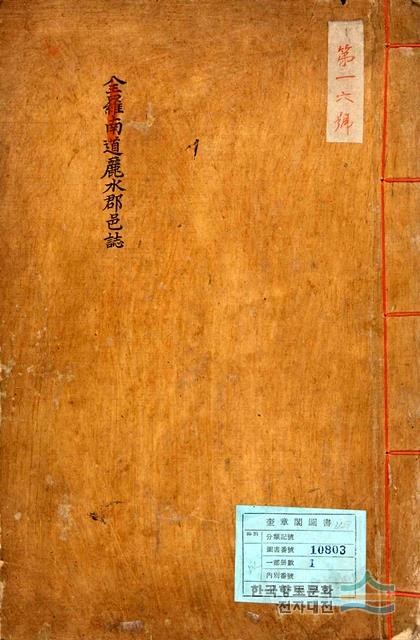 第一六號
全羅南道麗水郡邑誌
奎章閣圖書
分類記號
圖書番號 10803
一部冊數 1
內別番號
한국향토문화
전자대전